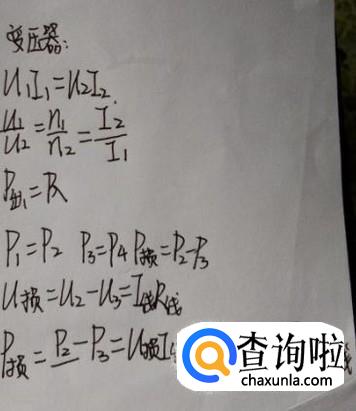 变压器:
U₁I₁=U₂I₂.
U₁/U₂=n₁/n₂=I₂/I₁
P出=P入
P₁=P₂ P₃=P₄ P损=P₂-P₃
U损=U₂-U₃=I线R线
P损=P₂-P₃=U损I
查询啦
chaxunla.com